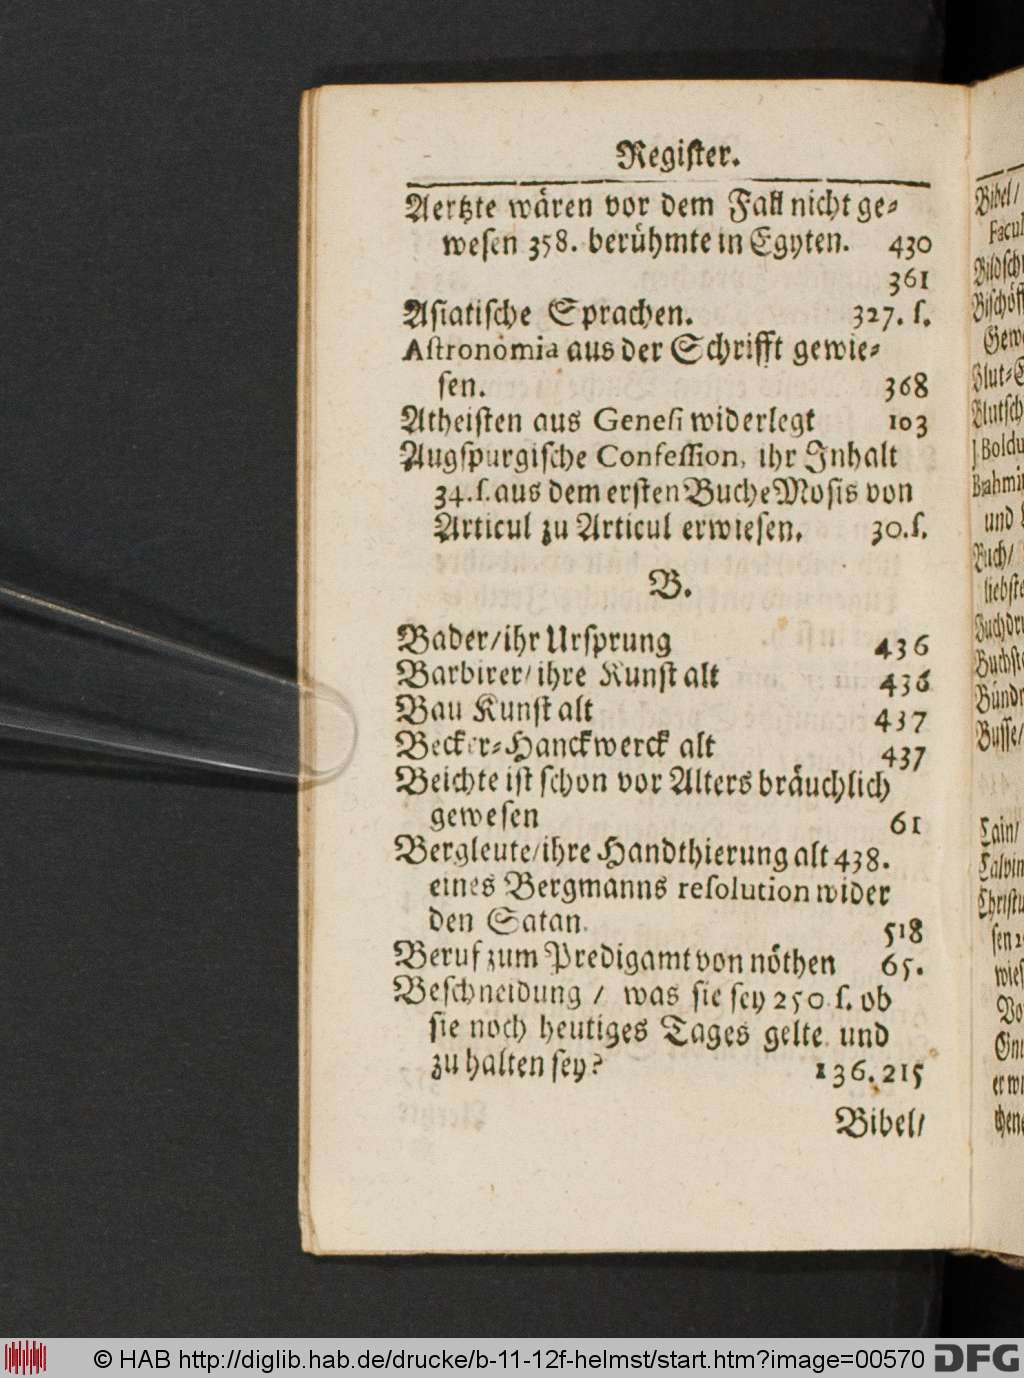 Regiſter.
Aertzte wären vor dem Fall nicht ge-
weſen 358. berühmte in Egyten. 430
361
Aſiatiſche Sprachen. 327. ſ.
Aſtronomia aus der Schrifft gewie-
ſen. 368
Atheiſten aus Geneſi widerlegt 103
Augſpurgiſche Confeſſion, ihr Inhalt
34.ſ. aus dem erſten Buche Moſis von
Articul zu Articul erwieſen. 30.ſ.
B.
Bader/ ihr Urſprung 436
Barbirer/ ihre Kunſt alt 436
Bau Kunſt alt 437
Becker-Hanckwerck alt 437
Beichte iſt ſchon vor Alters bräuchlich
geweſen 61
Bergleute/ ihre Handthierung alt 438.
eines Bergmanns reſolution wider
den Satan. 518
Beruf zum Predigamt von nöthen 65.
Beſchneidung / was ſie ſey 250. ſ. ob
ſie noch heutiges Tages gelte und
zu halten ſey? 136. 215
Bibel/
Bibel/
J. Boldu
und
Buch/
Buſſe/
Cain/
© HAB http://diglib.hab.de/drucke/b-11-12f-helmst/start.htm?image=00570 DFG